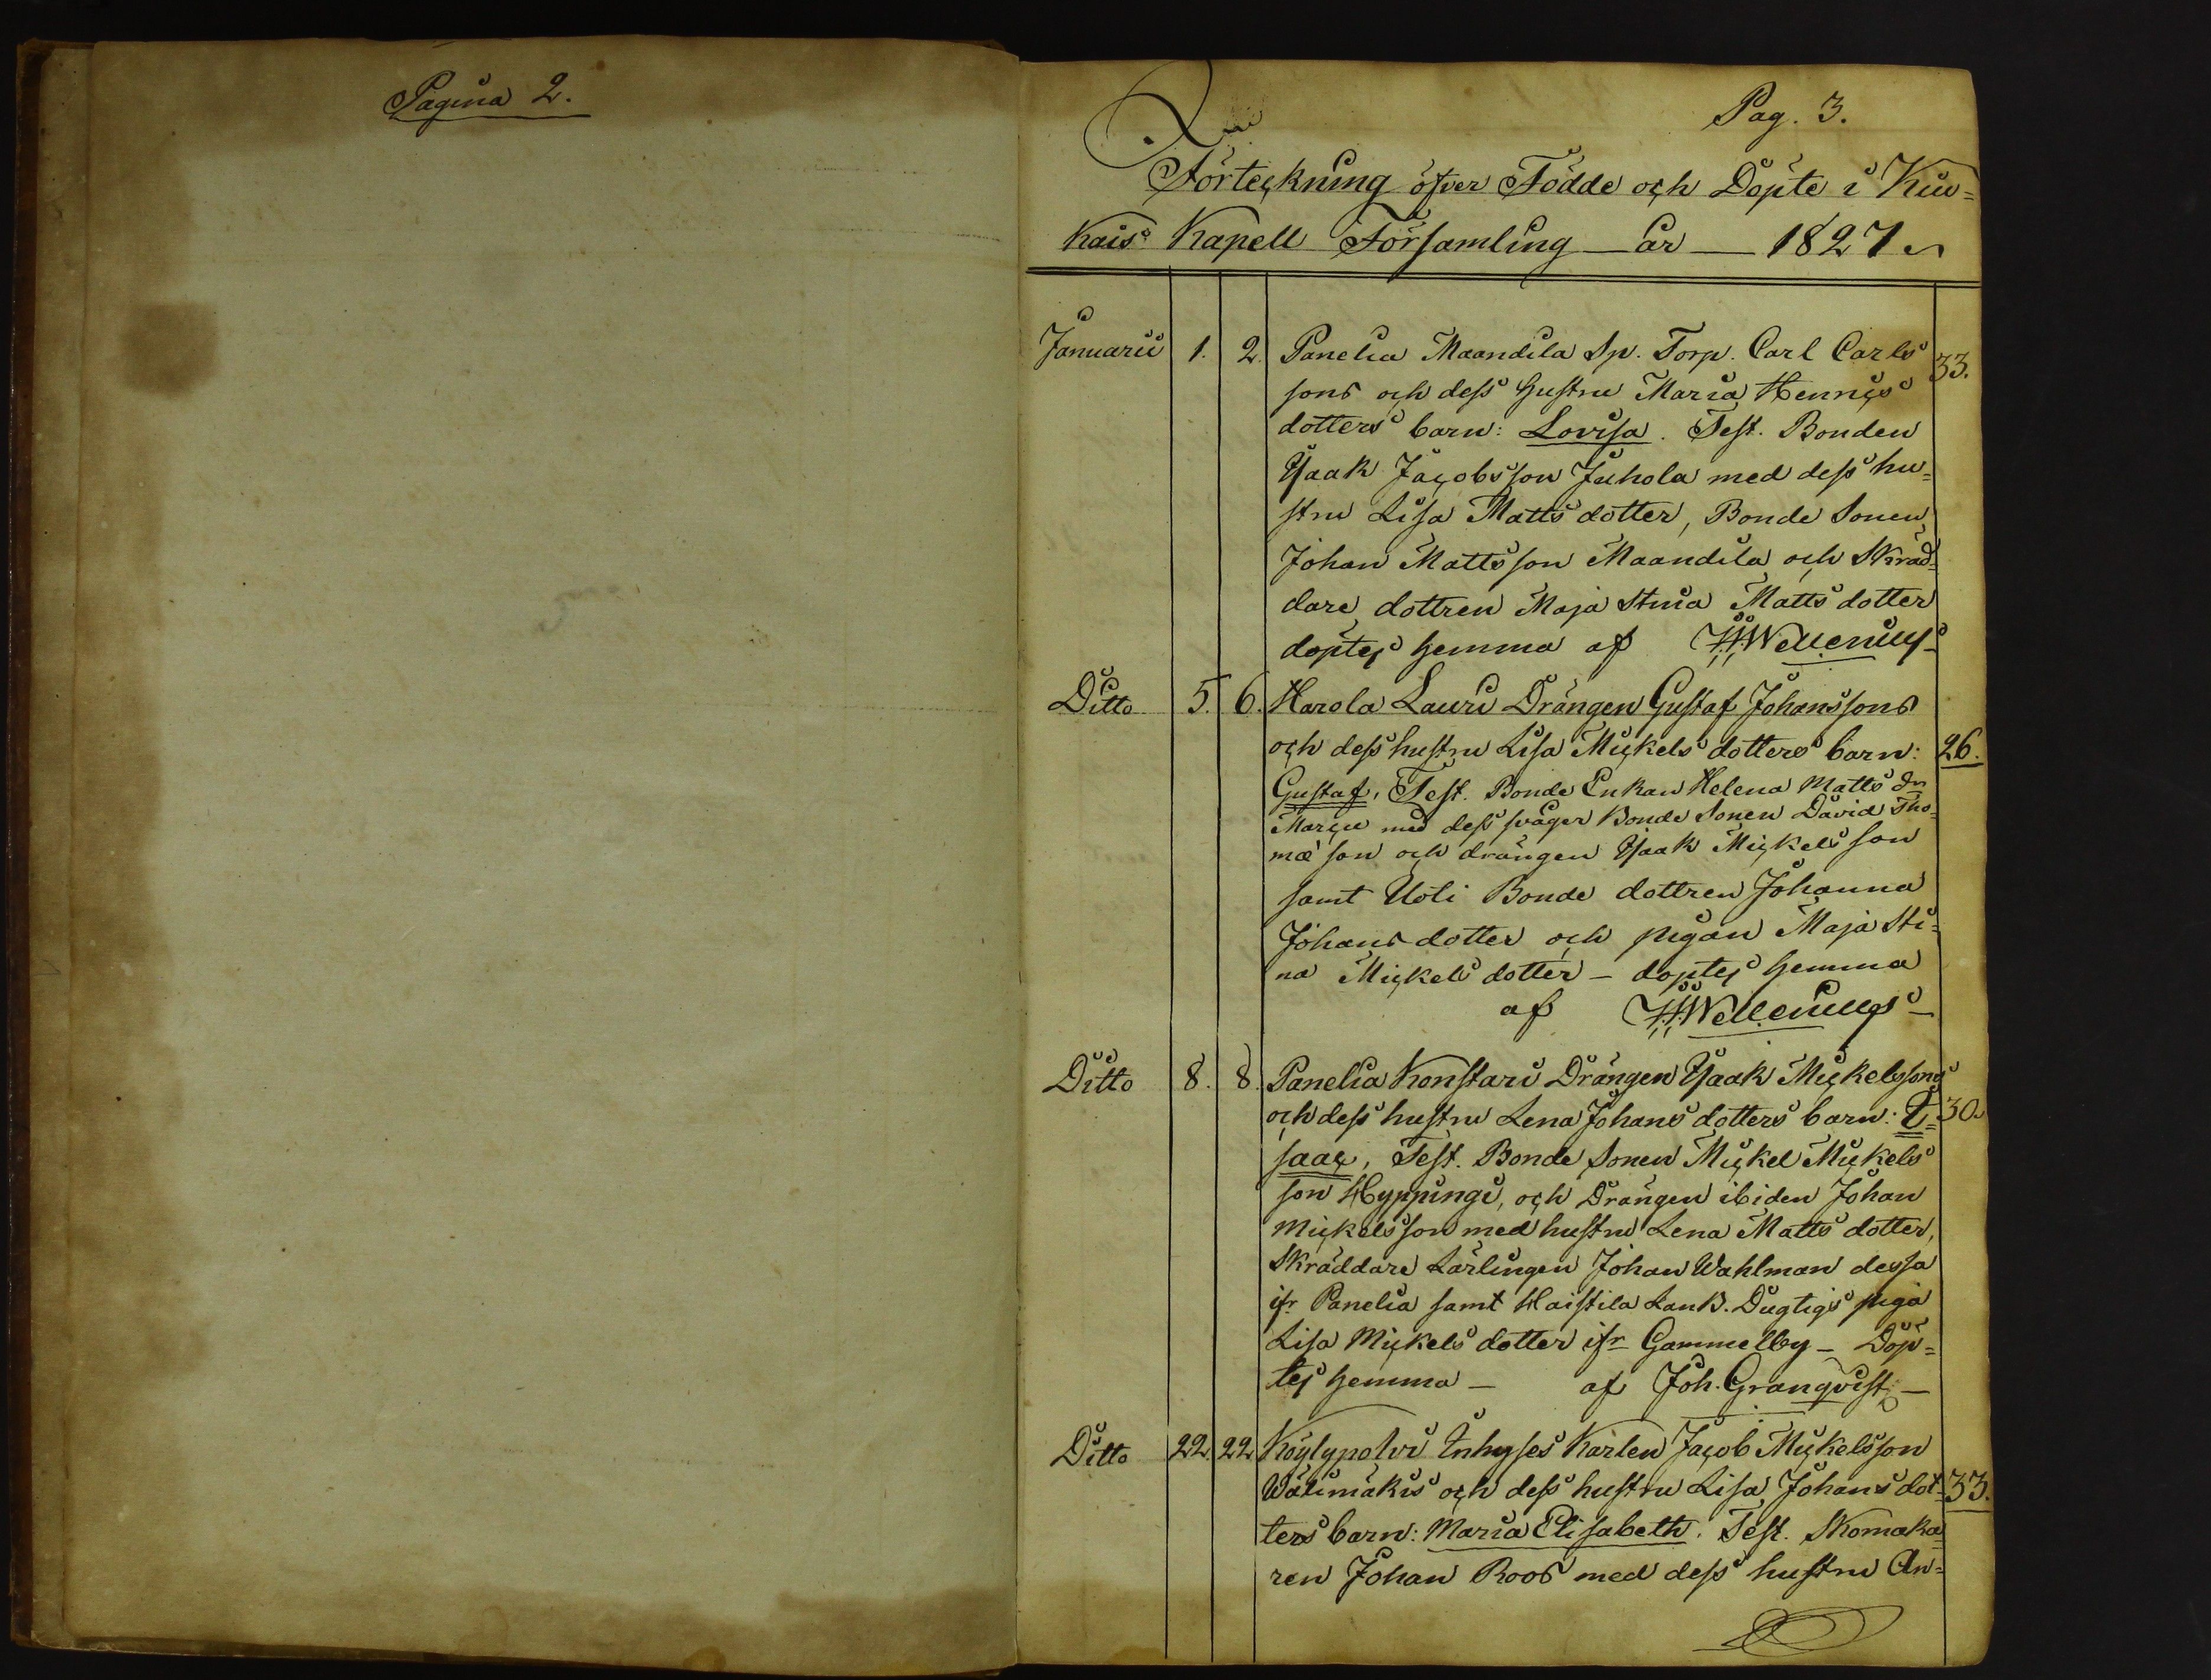 Pagina 2.
Pag. 3.
Förteckning öfver Födde och Döpte i Kiu=
kais Kapell Församling år 1827
Januarii 1. 2. Panelia Maandila Sp. Torp. Carl Carls 33.
sons och dess Hustru Maria Henrics
dotters barn: Lovisa. Test. Bonden
Isaak Jacobsson Juhola med dess hu=
stru Lisa Matts dotter, Bonde Sonen
Johan Mattsson Maandila och Skräd=
dare dottren Maja Stina Matts dotter
döptes hemma af
Ditto 5. 6. Harola Lauri Drängen Gustaf Johanssons
och dess hustru Lisa Mickels dotters barn: 26.
Gustaf, Test. Bonde Enkan Helena Matts dr
Marcu med dess svåger Bonde Sonen David Tho=
mæ son och drängen Isaak Mickels son
samt Uoti Bonde dottren Johanna
Johans dotter och pigan Maja Sti=
na Mickels dotter – döptes hemma
af
Ditto 8. 8. Panelia Konstari Drängen Isaak Mickelssons
och dess hustru Lena Johans dotters barn: I= 30.
saac, Test. Bonde Sonen Mickel Mickels
son Hyppingi, och Drängen ibiden Johan
Mickelsson med hustru Lena Matts dotter,
Skräddare Lärlingen Johan Wahlman dessa
ifr Panelia samt Haistila LanB. Dugtigs piga
Lisa Mickels dotter ifr Gammelby – Döp=
tes hemma – af Joh. Granqvist –
Ditto 22. 22 Köylypolvi Inhyses Karlen Jacob Mickelsson
Wälimäkis och dess hustru Lisa Johans dot= 33.
ters barn: Maria Elisabeth. Test. Skomaka
ren Johan Roos med dess hustru An=